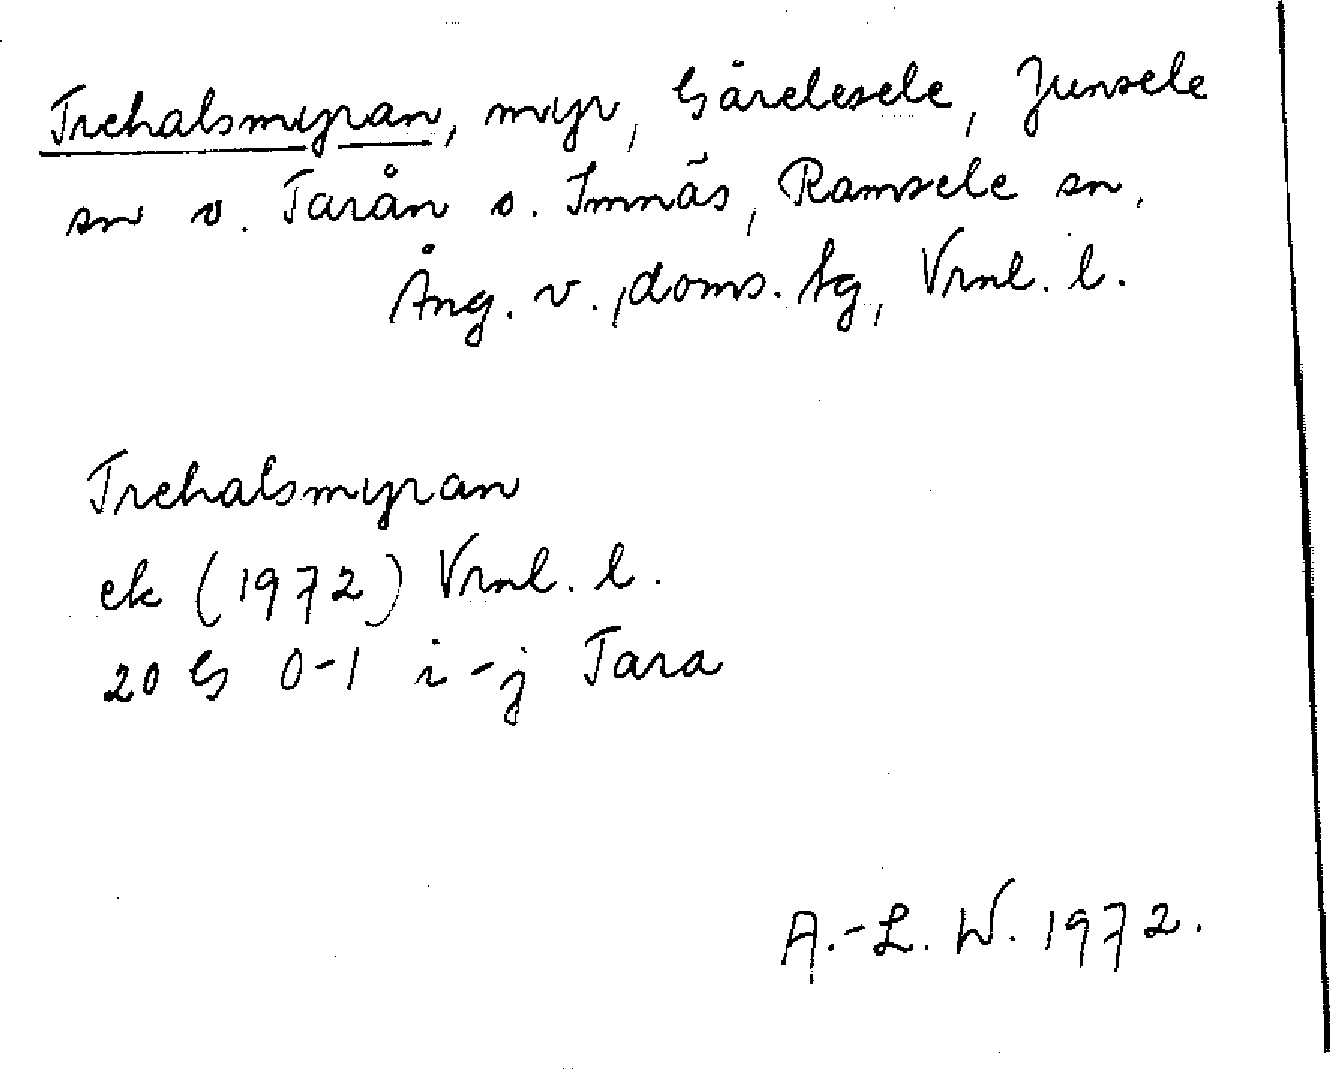 Trehalsmyran, myr, Gårelesele, Junsele
sn v. Tarån o. Imnäs, Ramsele sn,
Ång. v., doms. tg, Vrml. l.
Trehalsmyran
ek (1972) Vrml. l.
20 G 0-1 i-j Tara
A.-L. W. 1972.